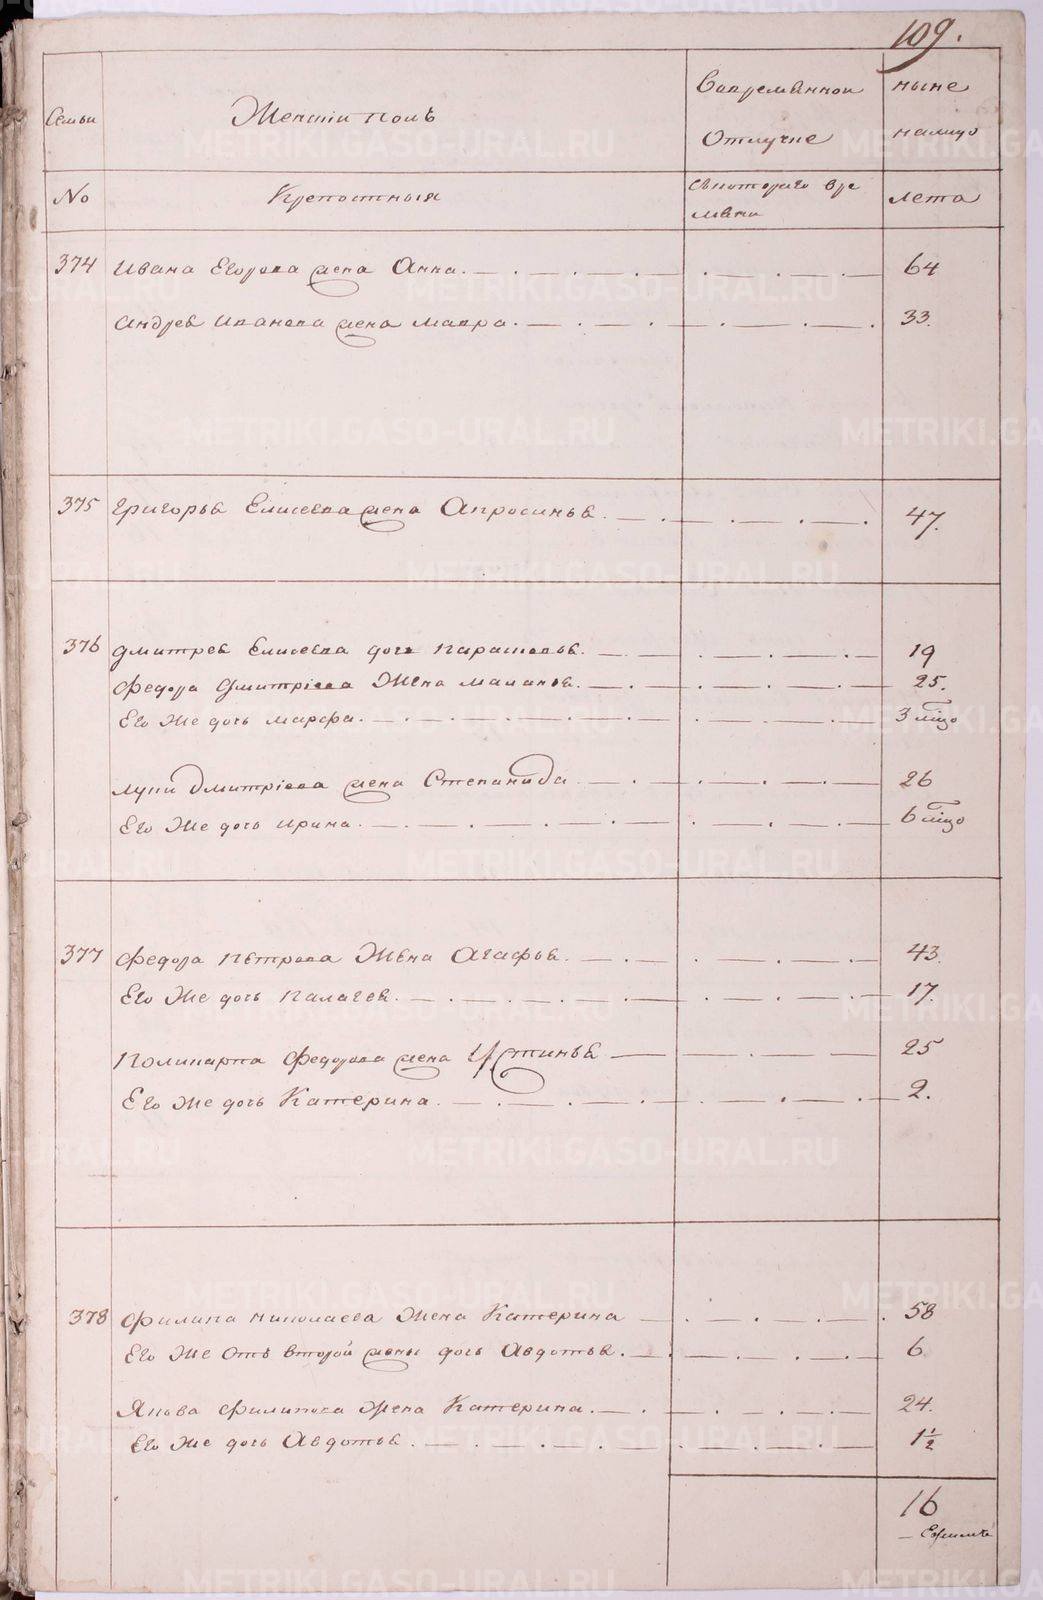 109.
Семьи
Женскiй полъ
Вовремѣнной
Отлучке
ныне
налицо
No
Крепостныя
Съкотораго вре
мѣни
Лета
374 Ивана Егорова жена Анна. 64
Андрея Иванова жена Мавра. 33.
375 Григорья Елисеева жена Апросинья. 47.
376 Дмитрея Елисеева дочь Парасковья. 19
Федора Дмитрiева Жена Маланья. 25.
Его Же дочь Марфа. 3 мѣцо
Лупи Дмитрiева жена Степанида 26
Его Же дочь Ирина. 6 мѣцо
377 Федора Петрова Жена Агафья. 43.
Его Же дочь Палагея. 17.
Поликарпа Федорова жена Устинья 25
Его Же дочь Катерина. 2.
378 Филипа Николаева Жена Катерина 58
Его Же Отъ второй жены дочь Авдотья. 6
Якова Филипова Жена Катерина. 24.
Его Же дочь Авдотья. 1½
16
METRIKI.GASO-URAL.RU